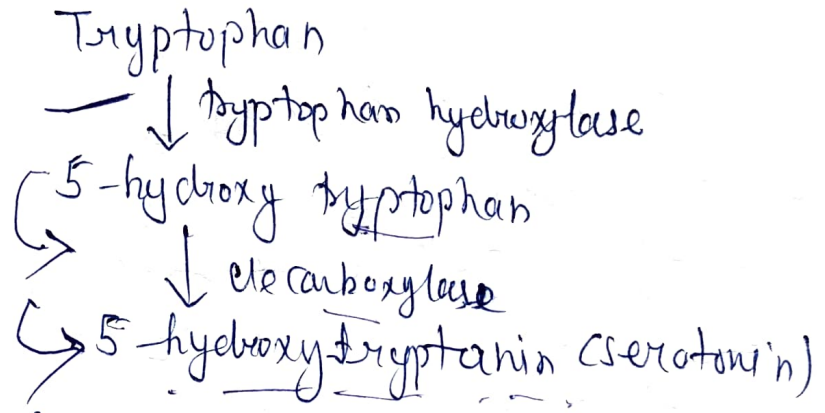 Tryptophan
↓ tryptophan hydroxylase
5-hydroxy tryptophan
↓ decarboxylase
5-hydroxytryptanin (serotonin)